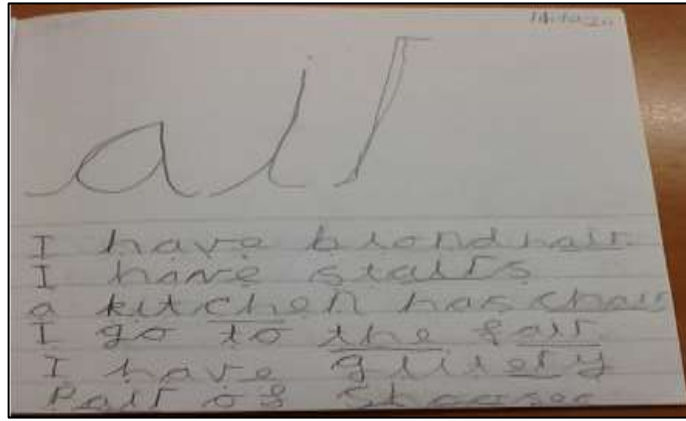 14.10.20
air
I have blond hair.
I have stairs
a kitchen has chair
I go to the fair.
I have glittery
Pair of shoosee